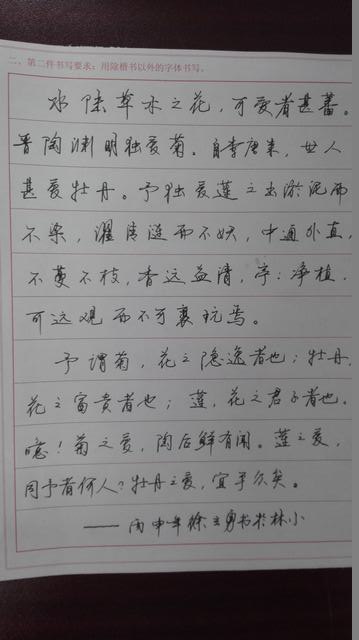 二、第二件书写要求：用除楷书以外的字体书写。
水陆草木之花，可爱者甚蕃。
晋陶渊明独爱菊。自李唐来，世人
甚爱牡丹。予独爱莲之出淤泥而
不染，濯清涟而不妖，中通外直，
不蔓不枝，香远益清，亭:净植，
可远观而不可亵玩焉。
予谓菊，花之隐逸者也；牡丹，
花之富贵者也；莲，花之君子者也。
噫！菊之爱，陶后鲜有闻。莲之爱，
同予者何人？牡丹之爱，宜乎众矣。
——丙申年徐立勇书于林小